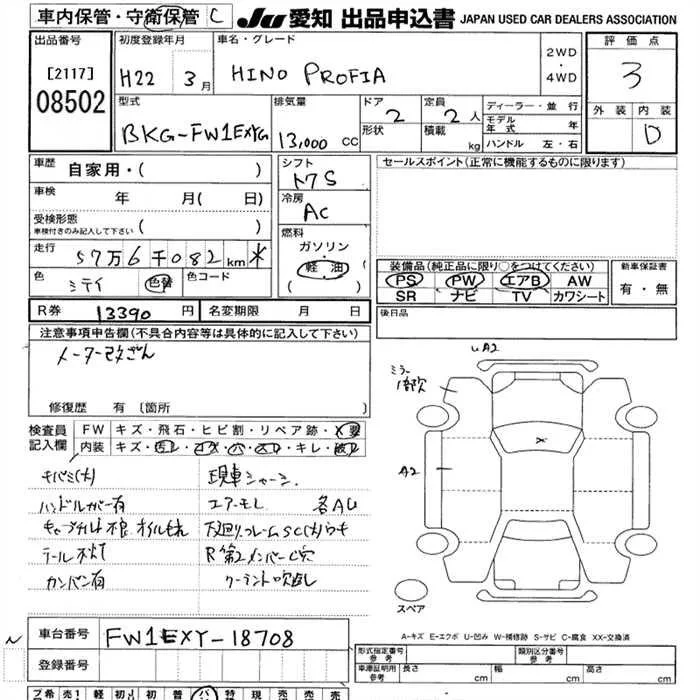 車内保管・守衛保管 C
JU 愛知 出品申込書 JAPAN USED CAR DEALERS ASSOCIATION
出品番号
[2117]
08502
初度登録年月
H22 3月
車名・グレード
HINO PROFIA
2WD
・
4WD
評価点
3
外装 内装
D
型式
BKG-FW1EXYG
排気量
13,000 CC
ドア 2
形状
定員 2人
積載 kg
ディーラー・並行
モデル年式 年
ハンドル 左・右
車歴 自家用・( )
車検 年 月( 日)
受検形態
車検付きのみ記入して下さい ( )
走行 57万6千082km *
色 ミテイ 色替 色コード
シフト
冷房
AC
燃料
ガソリン・
軽油
セールスポイント(正常に機能するものに限ります)
装備品(純正品に限り○をつけてください)
PS PW エアB AW
SR ナビ TV カワシート
新車保証書
有・無
後日品
R券 13390円 名変期限 月 日
注意事項申告欄(不具合内容等は具体的に記入して下さい)
メーター改ざん
修復歴 有 [箇所 ]
検査員記入欄
FW キズ・飛石・ヒビ割・リペア跡・X要
内装 キズ・汚レ・コゲ・穴・スレ・キレ・破レ
現車シャーシ.
ハンドルカバー有 エアーモレ 各AU
キャブチルト不良 オイルもれ
テール不灯 R第2メンバー
カンバン有 クーラント吹返し
UA2
ミラー
A2
スペア
A-キズ E-エクボ U-凹み W-補修跡 S-サビ C-腐食 XX-交換済
車台番号 FW1EXY-18708
登録番号
形式指定番号 参考 類別区分番号 参考
車庫証明用 参考 長さ cm 幅 cm 高さ cm